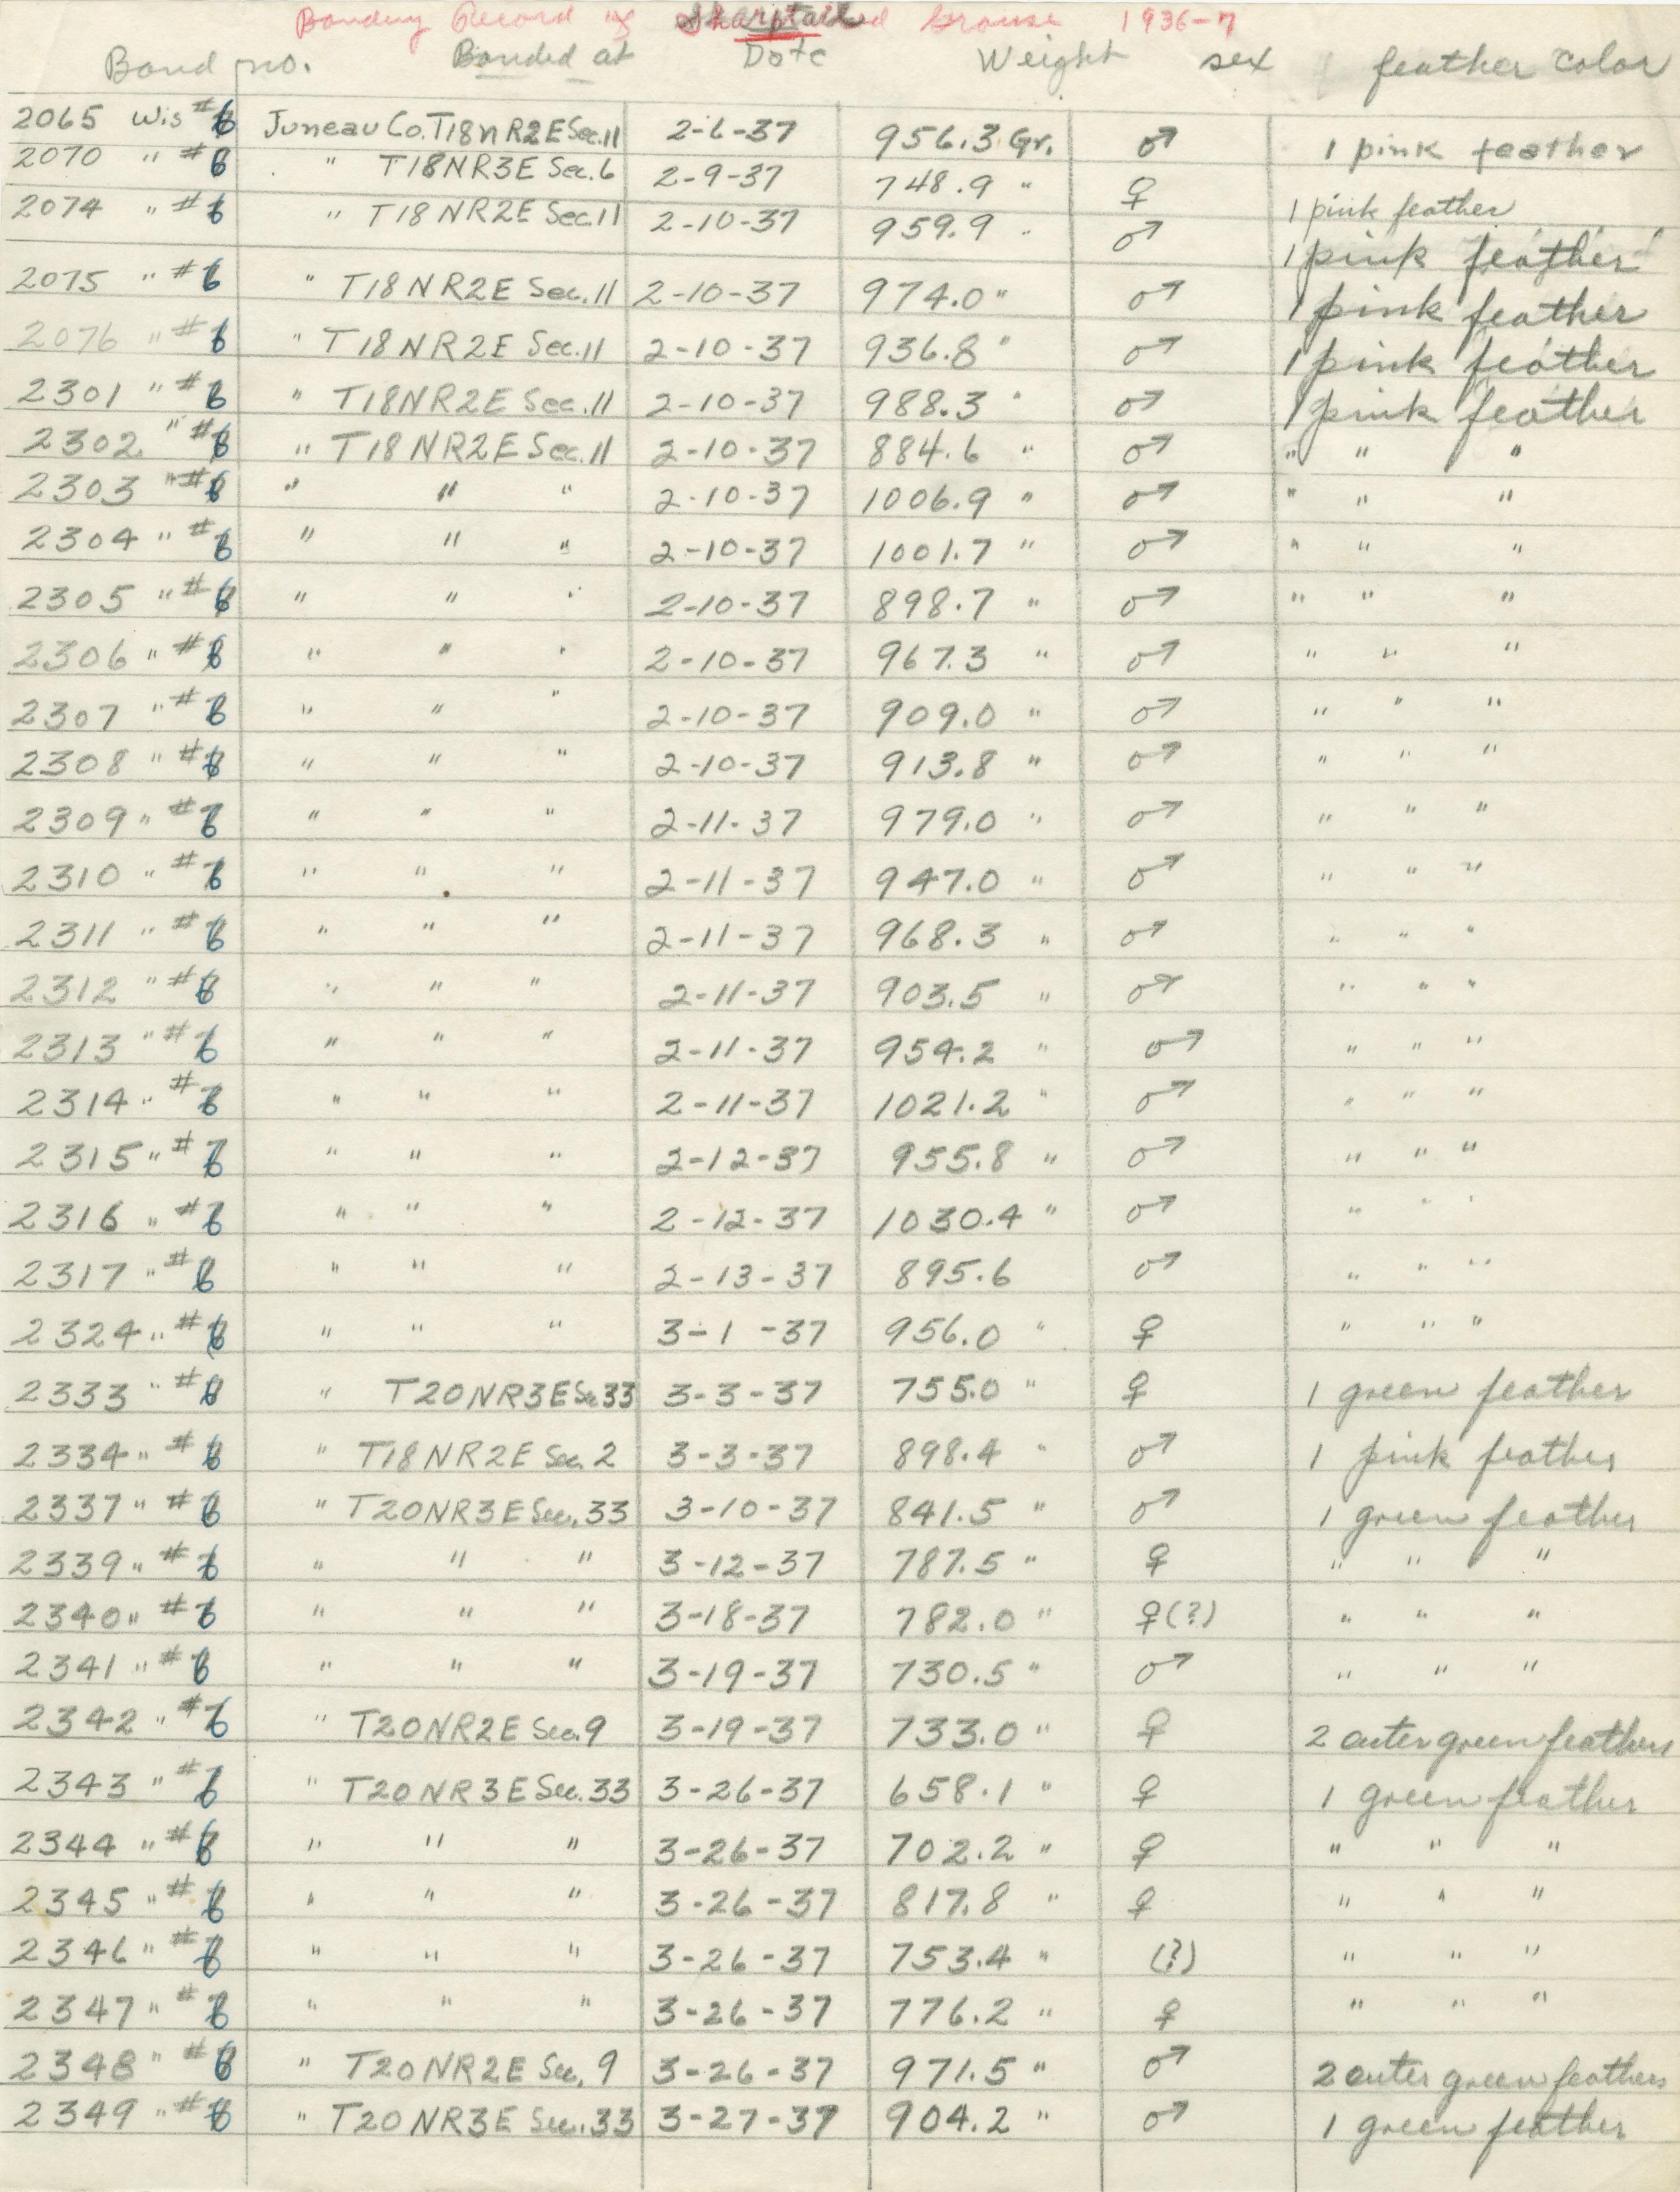 Banding Record of Sharptailed Grouse 1936-7
Band no. Banded at Date Weight sex feather color
2065 Wis #6 Juneau Co. T18N R2E Sec.11 2-6-37 956.3 Gr. ♂ 1 pink feather
2070 " #6 " T18NR3E Sec.6 2-9-37 748.9 " ♀ 1 pink feather
2074 " #6 " T18NR2E Sec.11 2-10-37 959.9 " ♂ 1 pink feather
2075 " #6 " T18NR2E Sec.11 2-10-37 974.0 " ♂ 1 pink feather
2076 " #6 " T18NR2E Sec.11 2-10-37 936.8 " ♂ 1 pink feather
2301 " #6 " T18NR2E Sec.11 2-10-37 988.3 " ♂ 1 pink feather
2302 " #6 " T18NR2E Sec.11 2-10-37 884.6 " ♂ " " "
2303 " #6 " " " 2-10-37 1006.9 " ♂ " " "
2304 " #6 " " " 2-10-37 1001.7 " ♂ " " "
2305 " #6 " " " 2-10-37 898.7 " ♂ " " "
2306 " #6 " " " 2-10-37 967.3 " ♂ " " "
2307 " #6 " " " 2-10-37 909.0 " ♂ " " "
2308 " #6 " " " 2-10-37 913.8 " ♂ " " "
2309 " #6 " " " 2-11-37 979.0 " ♂ " " "
2310 " #6 " " " 2-11-37 947.0 " ♂ " " "
2311 " #6 " " " 2-11-37 968.3 " ♂ " " "
2312 " #6 " " " 2-11-37 903.5 " ♂ " " "
2313 " #6 " " " 2-11-37 954.2 " ♂ " " "
2314 " #6 " " " 2-11-37 1021.2 " ♂ " " "
2315 " #6 " " " 2-12-37 955.8 " ♂ " " "
2316 " #6 " " " 2-12-37 1030.4 " ♂ " " "
2317 " #6 " " " 2-13-37 895.6 ♂ " " "
2324 " #6 " " " 3-1-37 956.0 " ♀ " " "
2333 " #6 " T20NR3E Sec.33 3-3-37 755.0 " ♀ 1 green feather
2334 " #6 " T18NR2E Sec.2 3-3-37 898.4 " ♂ 1 pink feather
2337 " #6 " T20NR3E Sec.33 3-10-37 841.5 " ♂ 1 green feather
2339 " #6 " " " 3-12-37 787.5 " ♀ " " "
2340 " #6 " " " 3-18-37 782.0 " ♀(?) " " "
2341 " #6 " " " 3-19-37 730.5 " ♂ " " "
2342 " #6 " T20NR2E Sec.9 3-19-37 733.0 " ♀ 2 outer green feathers
2343 " #6 " T20NR3E Sec.33 3-26-37 658.1 " ♀ 1 green feather
2344 " #6 " " " 3-26-37 702.2 " ♀ " " "
2345 " #6 " " " 3-26-37 817.8 " ♀ " " "
2346 " #6 " " " 3-26-37 753.4 " (?) " " "
2347 " #6 " " " 3-26-37 776.2 " ♀ " " "
2348 " #6 " T20NR2E Sec.9 3-26-37 971.5 " ♂ 2 outer green feathers
2349 " #6 " T20NR3E Sec.33 3-27-37 904.2 " ♂ 1 green feather